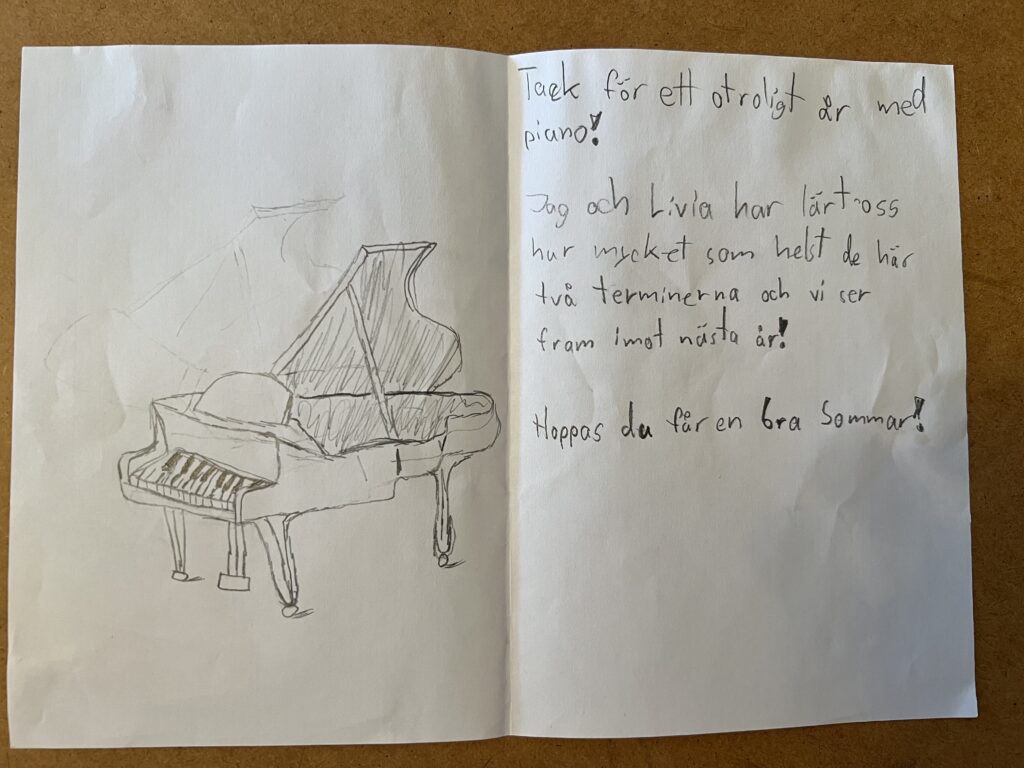 Tack för ett otroligt år med
piano!
Jag och Livia har lärt oss
hur mycket som helst de här
två terminerna och vi ser
fram imot nästa år!
Hoppas du får en bra sommar!